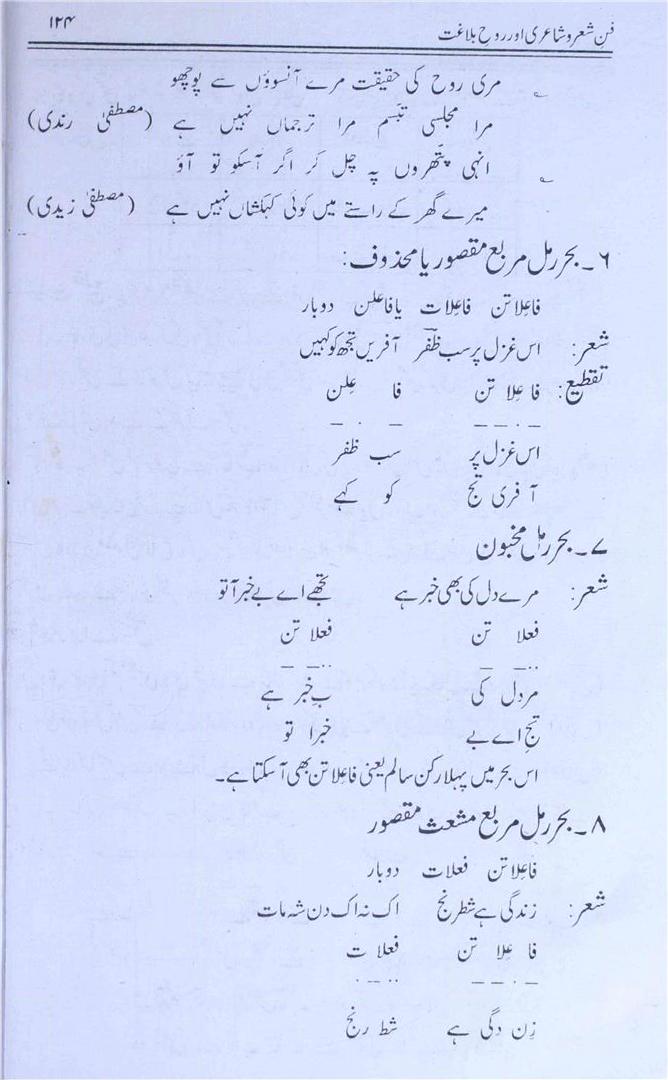 فن شعر و شاعری اور روح بلاغت ۱۲۴
مری روح کی حقیقت مرے آنسوؤں سے پوچھو
مرا مجلسی تبسم مرا ترجماں نہیں ہے (مصطفیٰ رندی)
انہی پتھروں پہ چل کر اگر آسکو تو آؤ
میرے گھر کے راستے میں کوئی کہکشاں نہیں ہے (مصطفیٰ زیدی)
۶۔ بحر رمل مربع مقصور یا محذوف:
فاعلاتن فاعلات یا فاعلن دوبار
شعر: اس غزل پر سب ظفر آفریں تجھ کو کہیں
تقطیع: فاعِلا تن فا عِلن
– . – – – . –
اس غزل پر سب ظفر
آ فری تج کو کہے
۷۔ بحر رمل مخبون
شعر: مرے دل کی بھی خبر ہے تجھے اے بے خبر آتو
فعلا تن فعلا تن
.. – – .. – –
مردل کی بِ خبر ہے
تجِ اے بے خبرا تو
اس بحر میں پہلا رکن سالم یعنی فاعلاتن بھی آسکتا ہے۔
۸۔ بحر رمل مربع مشعث مقصور
فاعلاتن فعلات دوبار
شعر: زندگی ہے شطرنج اک نہ اک دن شہ مات
فا عِلا تن فعلا ت
– . – – .. – .
زِن دگی ہے شط رنج